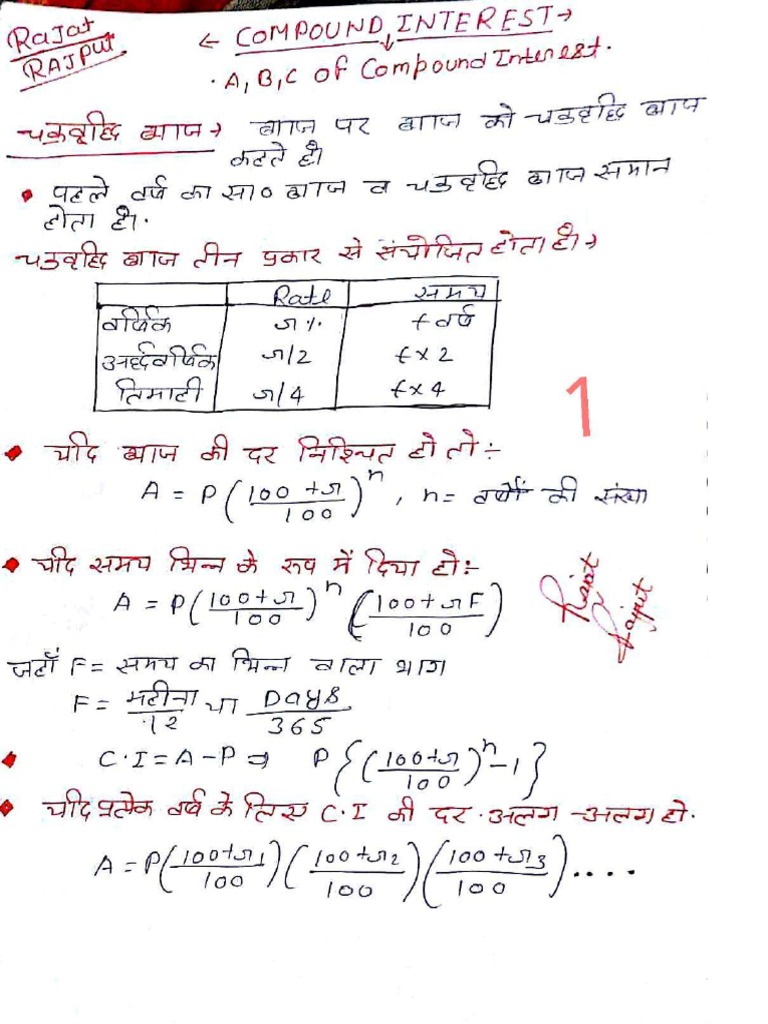 Rajat
RAJPUT
← COMPOUND INTEREST →
. A, B, C of Compound Interest.
चक्रवृद्धि ब्याज → ब्याज पर ब्याज को चक्रवृद्धि ब्याज
कहते है।
• पहले वर्ष का सा० ब्याज व चक्रवृद्धि ब्याज समान
होता है।.
चक्रवृद्धि ब्याज तीन प्रकार से संयोजित होता है। →
Rate समय
वार्षिक r% t वर्ष
अर्द्धवार्षिक r/2 t×2
तिमाही r/4 t×4
1
• यदि ब्याज की दर निश्चित हो तो :-
A = P((100+r)/100)^n, n = वर्षों की संख्या
• यदि समय भिन्न के रूप में दिया हो :-
A = P((100+r)/100)^n ((100+rF)/100)
Rajat
Rajput
जहाँ F = समय का भिन्न वाला भाग
F = महीना/12 या Days/365
• C.I = A-P ⇒ P{((100+r)/100)^n -1}
• यदि प्रत्येक वर्ष के लिए C.I की दर अलग-अलग हो.
A = P((100+r1)/100)((100+r2)/100)((100+r3)/100)....